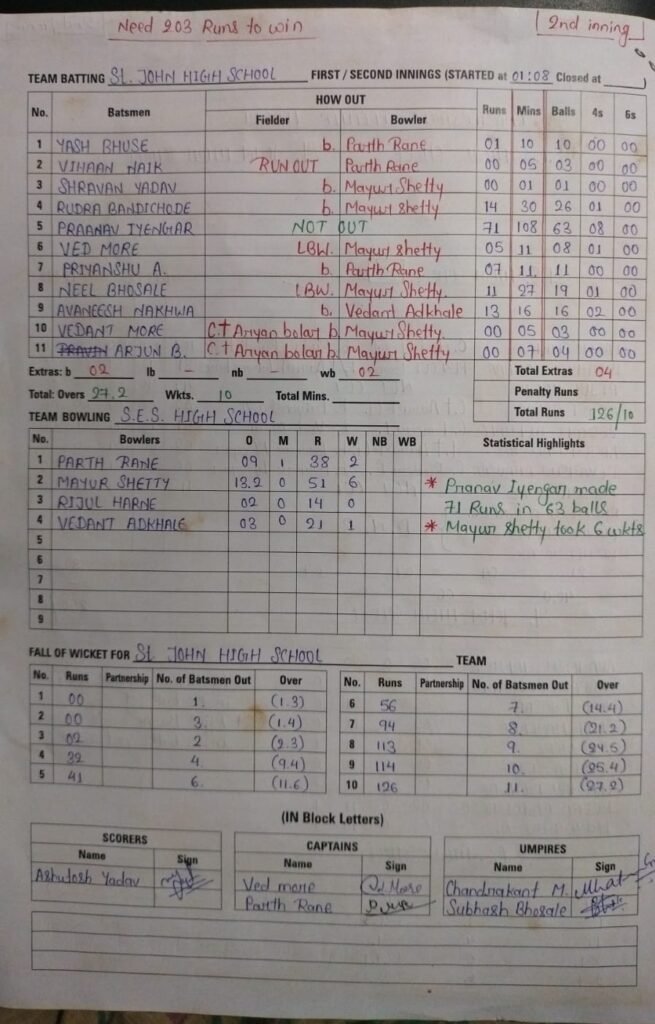 Need 203 Runs to win
2nd inning
TEAM BATTING St. JOHN HIGH SCHOOL FIRST / SECOND INNINGS (STARTED at 01:08 Closed at
No. Batsmen HOW OUT Fielder Bowler Runs Mins Balls 4s 6s
1 YASH BHUSE b. Parth Rane 01 10 10 00 00
2 VIHAAN NAIK RUN OUT Parth Rane 00 05 03 00 00
3 SHRAVAN YADAV b. Mayur Shetty 00 01 01 00 00
4 RUDRA BANDICHODE b. Mayur shetty 14 30 26 01 00
5 PRAANAV IYENGAR NOT OUT 71 108 63 08 00
6 VED MORE LBW. Mayur shetty 05 11 08 01 00
7 PRIYANSHU A. b. Parth Rane 07 11 11 00 00
8 NEEL BHOSALE LBW. Mayur Shetty. 11 27 19 01 00
9 AVANEESH NAKHWA b. Vedant Adkhale 13 16 16 02 00
10 VEDANT MORE C.t Aryan bolar b. Mayur Shetty. 00 05 03 00 00
11 ARJUN B. C.t Aryan bolar b. Mayur Shetty 00 07 04 00 00
Extras: b 02 lb - nb - wb 02 Total Extras 04
Penalty Runs
Total: Overs 27.2 Wkts. 10 Total Mins. Total Runs 126/10
TEAM BOWLING S.E.S. HIGH SCHOOL
No. Bowlers O M R W NB WB Statistical Highlights
1 PARTH RANE 09 1 38 2
2 MAYUR SHETTY 13.2 0 51 6 * Pranav Iyengar made
3 RIJUL HARNE 02 0 14 0 71 Runs in 63 balls
4 VEDANT ADKHALE 03 0 21 1 * Mayur Shetty took 6 wkts
5
6
7
8
9
FALL OF WICKET FOR St JOHN HIGH SCHOOL TEAM
No. Runs Partnership No. of Batsmen Out Over No. Runs Partnership No. of Batsmen Out Over
1 00 1. (1.3) 6 56 7. (14.4)
2 00 3. (1.4) 7 94 8. (21.2)
3 02 2 (2.3) 8 113 9. (24.5)
4 32 4. (9.4) 9 114 10. (25.4)
5 41 6. (11.6) 10 126 11. (27.2)
(IN Block Letters)
SCORERS CAPTAINS UMPIRES
Name Sign Name Sign Name Sign
Ashutosh Yadav Ved more Chandrakant M.
Parth Rane Subhash Bhosale